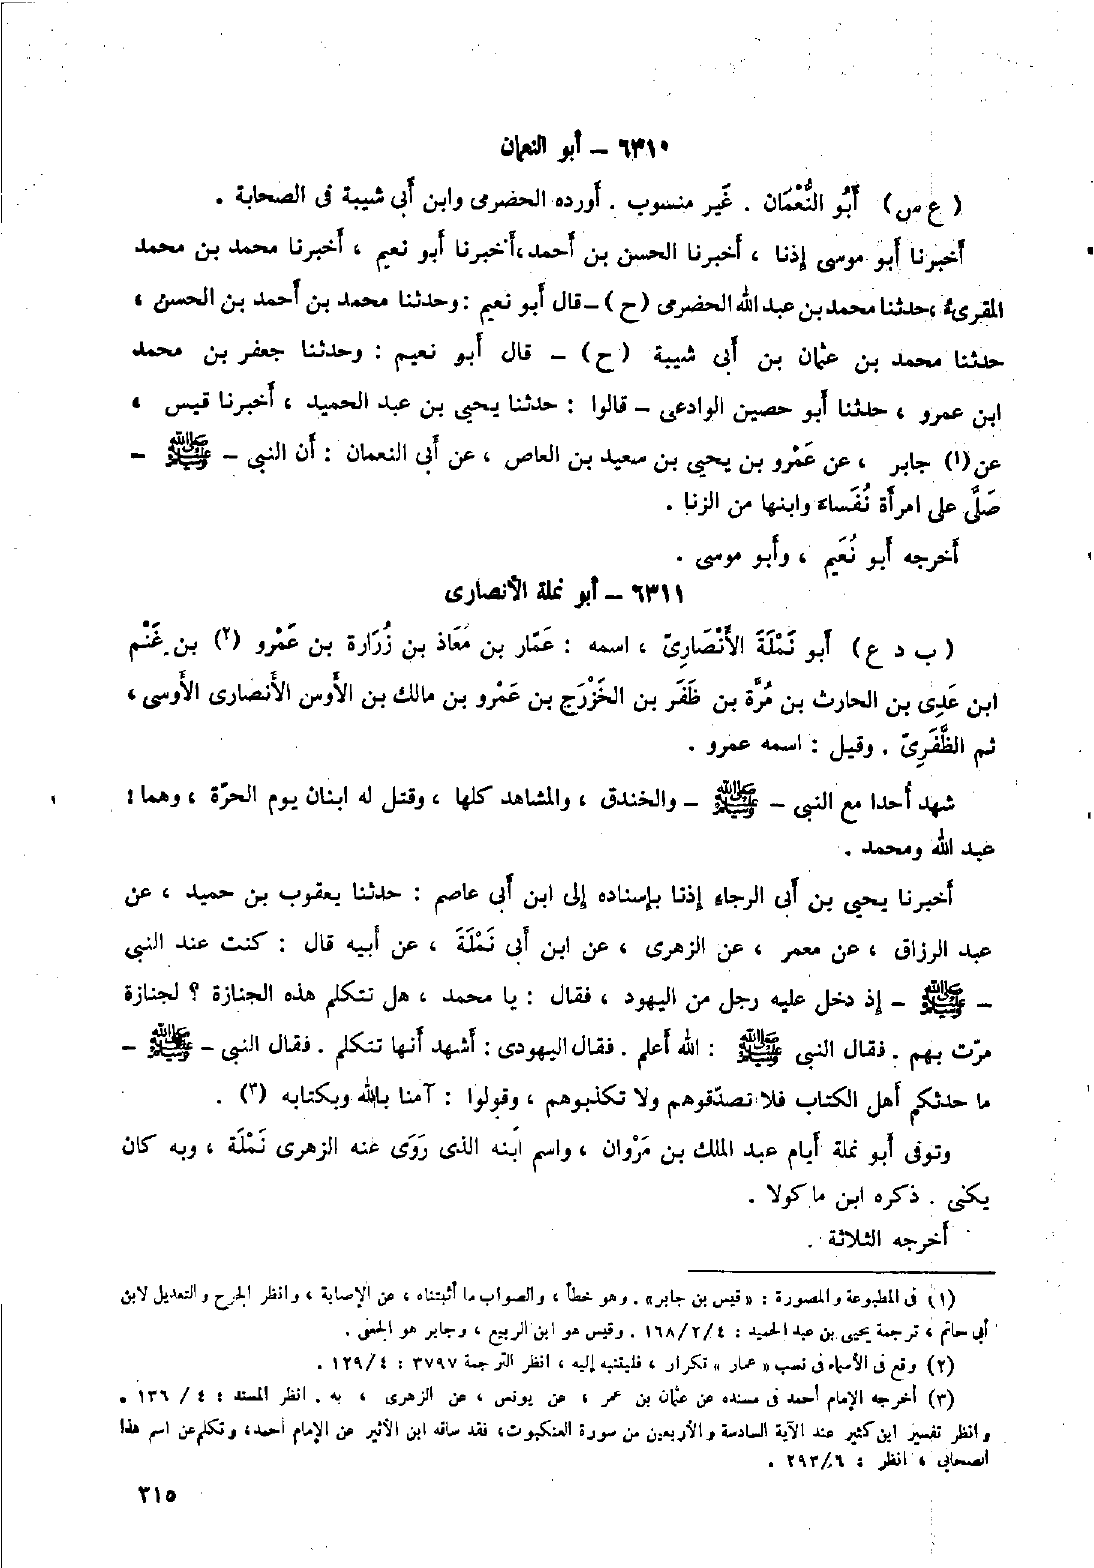 ٦٣١٠ – أبو النعمان
( ع س ) أَبُو النُّعْمَان . غَير منسوب . أورده الحضرمى وابن أبى شيبة فى الصحابة .
أخبرنا أبو موسى إذنا ، أخبرنا الحسن بن أحمد،أخبرنا أبو نعيم ، أخبرنا محمد بن محمد
المقرىء ،حدثنا محمد بن عبد الله الحضرمى (ح) – قال أبو نعيم : وحدثنا محمد بن أحمد بن الحسن ،
حدثنا محمد بن عثمان بن أبى شيبة (ح) – قال أبو نعيم : وحدثنا جعفر بن محمد
ابن عمرو ، حدثنا أبو حصين الوادعى – قالوا : حدثنا يحيى بن عبد الحميد ، أخبرنا قيس ،
عن (١) جابر ، عن عَمْرو بن يحيى بن سعيد بن العاص ، عن أبى النعمان : أن النبى – ﷺ –
صَلَّى على امرأة نُفَساء وابنها من الزنا .
أخرجه أبو نُعَيم ، وأبو موسى .
٦٣١١ – أبو نملة الأنصارى
( ب د ع ) أبو نَمْلَةَ الأَنْصَارِىّ ، اسمه : عَمّار بن مُعَاذ بن زُرَارة بن عَمْرو (٢) بن غَنْم
ابن عَدِى بن الحارث بن مُرَّة بن ظَفَر بن الخَزْرَج بن عَمْرو بن مالك بن الأوس الأنصارى الأوسى ،
ثم الظَّفَرِىّ . وقيل : اسمه عمرو .
شهد أُحدا مع النبى – ﷺ – والخندق ، والمشاهد كلها ، وقتل له ابنان يوم الحرّة ، وهما :
عبد الله ومحمد .
أخبرنا يحيى بن أبى الرجاء إذنا بإسناده إلى ابن أبى عاصم : حدثنا يعقوب بن حميد ، عن
عبد الرزاق ، عن معمر ، عن الزهرى ، عن ابن أبى نَمْلَةَ ، عن أبيه قال : كنت عند النبى
– ﷺ – إذ دخل عليه رجل من اليهود ، فقال : يا محمد ، هل تتكلم هذه الجنازة ؟ لجنازة
مرّت بهم . فقال النبى ﷺ : الله أعلم . فقال اليهودى : أشهد أنها تتكلم . فقال النبى – ﷺ –
ما حدثكم أهل الكتاب فلا تصدّقوهم ولا تكذبوهم ، وقولوا : آمنا بالله وبكتابه (٣) .
وتوفى أبو نملة أيام عبد الملك بن مَرْوان ، واسم ابنه الذى رَوَى عنه الزهرى نَمْلَة ، وبه كان
يكنى . ذكره ابن ماكولا .
أخرجه الثلاثة .
(١) فى المطبوعة والمصورة : « قيس بن جابر» . وهو خطأ ، والصواب ما أثبتناه ، عن الإصابة ، وانظر الجرح والتعديل لابن
أبى حاتم ، ترجمة يحيى بن عبد الحميد : ١٦٨/٢/٤ . وقيس هو ابن الربيع ، وجابر هو الجعفى .
(٢) وقع فى الأسماء فى نسب « عمار » تكرار ، فليتنبه إليه ، انظر الترجمة ٣٧٩٧ : ١٢٩/٤ .
(٣) أخرجه الإمام أحمد فى مسنده عن عثمان بن عمر ، عن يونس ، عن الزهرى ، به . انظر المسند : ٤ / ١٣٦ .
وانظر تفسير ابن كثير عند الآية السادسة والأربعين من سورة العنكبوت، فقد ساقه ابن الأثير عن الإمام أحمد، وتكلم عن اسم هذا
الصحابى ، انظر : ٢٩٣/٦ .
٣١٥